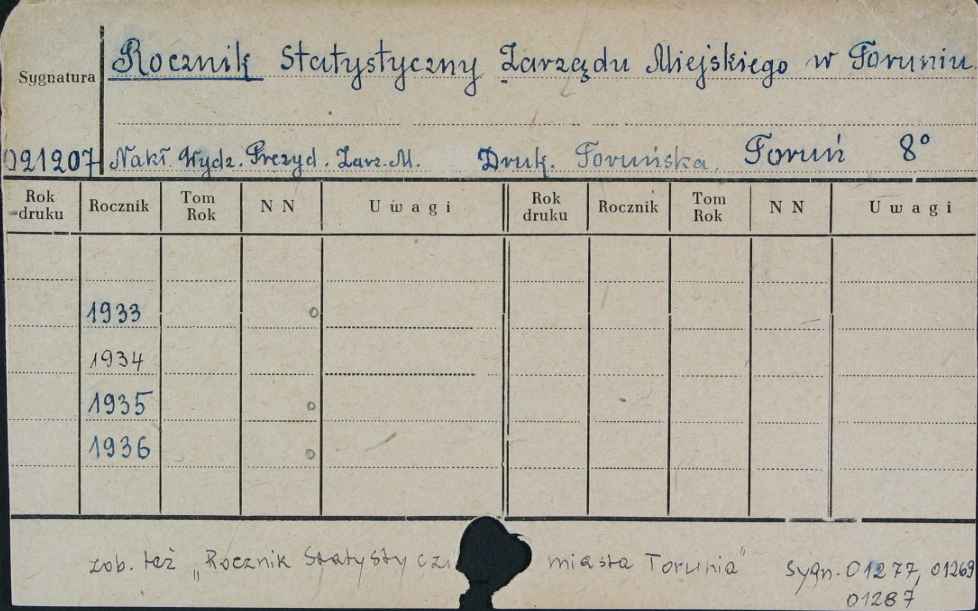 Rocznik Statystyczny Zarządu Miejskiego w Toruniu
Sygnatura
021207 Nakł. Wydz. Prezyd. Zarz. M. Druk. Toruńska. Toruń 8°
Rok druku Rocznik Tom Rok N N Uwagi Rok druku Rocznik Tom Rok N N Uwagi
1933
1934
1935
1936
zob. też „Rocznik Statystycz miasta Torunia" Sygn. 01277, 01269
01287